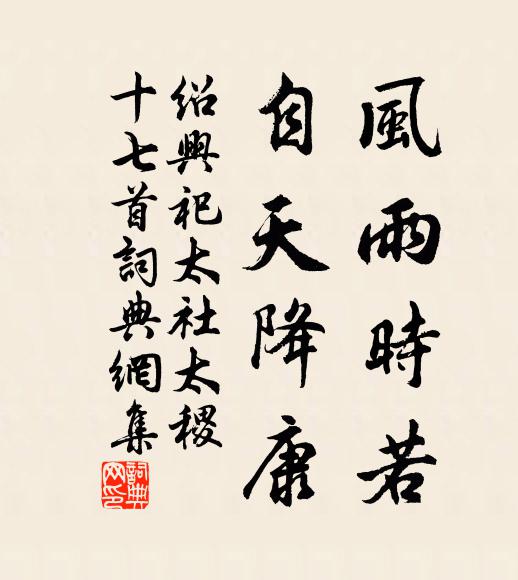 風雨時若
自天降康
紹興祀太社太稷
十七首詞典網集
詞典網印